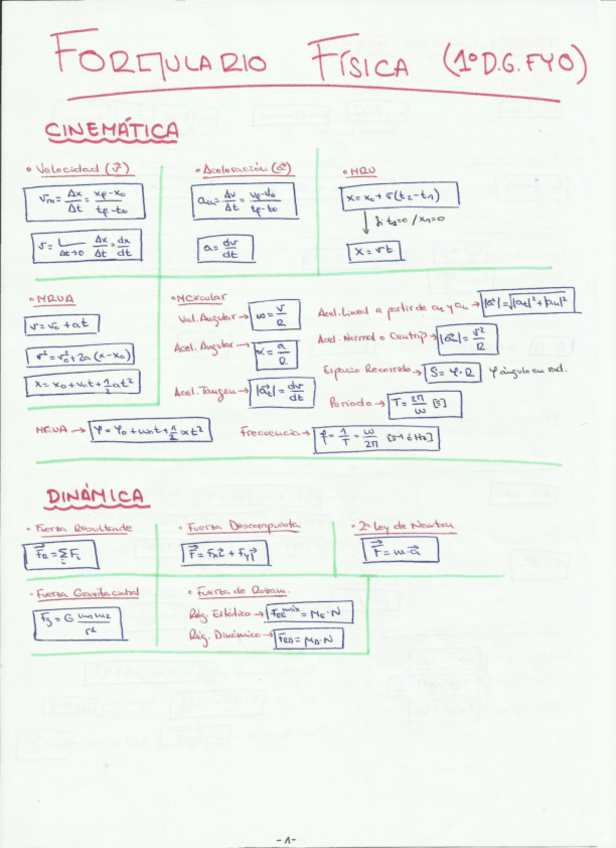 FORMULARIO FÍSICA (1º D.G. FYO)
CINEMÁTICA
• Velocidad (v⃗)
vₘ = Δx/Δt = (x_f - x₀)/(t_f - t₀)
Δt→0 Δx/Δt = dx/dt
• Aceleración (a⃗)
aₘ = Δv/Δt = (v_f - v₀)/(t_f - t₀)
a = dv/dt
• MRU
x = x₀ + v(t₂ - t₁)
x = vt
• MRUA
v = v₀ + at
v² = v₀² + 2a(x - x₀)
x = x₀ + v₀t + 1/2 at²
• MCircular
Vel. Angular → ω = v/R
Acel. Angular → α = a/R
Acel. Tangen → |a⃗t| = dv/dt
Acel. Lineal a partir de an y → |a⃗| = √|at|² + |an|²
Acel. Normal o Centríp → |a⃗n| = v²/R
Espacio Recorrido → S = φ·R φ ángulo en rad.
Periodo → T = 2π/ω [s]
MCUA → φ = φ₀ + ω₀t + 1/2 αt²
Frecuencia → f = 1/T = ω/2π [s-1 ó Hz]
DINÁMICA
• Fuerza Resultante
F⃗R = ΣFi
• Fuerza Descompuesta
F⃗ = Fx i⃗ + Fy j⃗
• 2ª Ley de Newton
F⃗ = m·a⃗
- Fuerza Gravitacional
Fg = G m₁m₂/r²
• Fuerza de Rozam.
Rég. Estático → F_RE^máx = μE·N
Rég. Dinámico → F_RD = μD·N
-1-